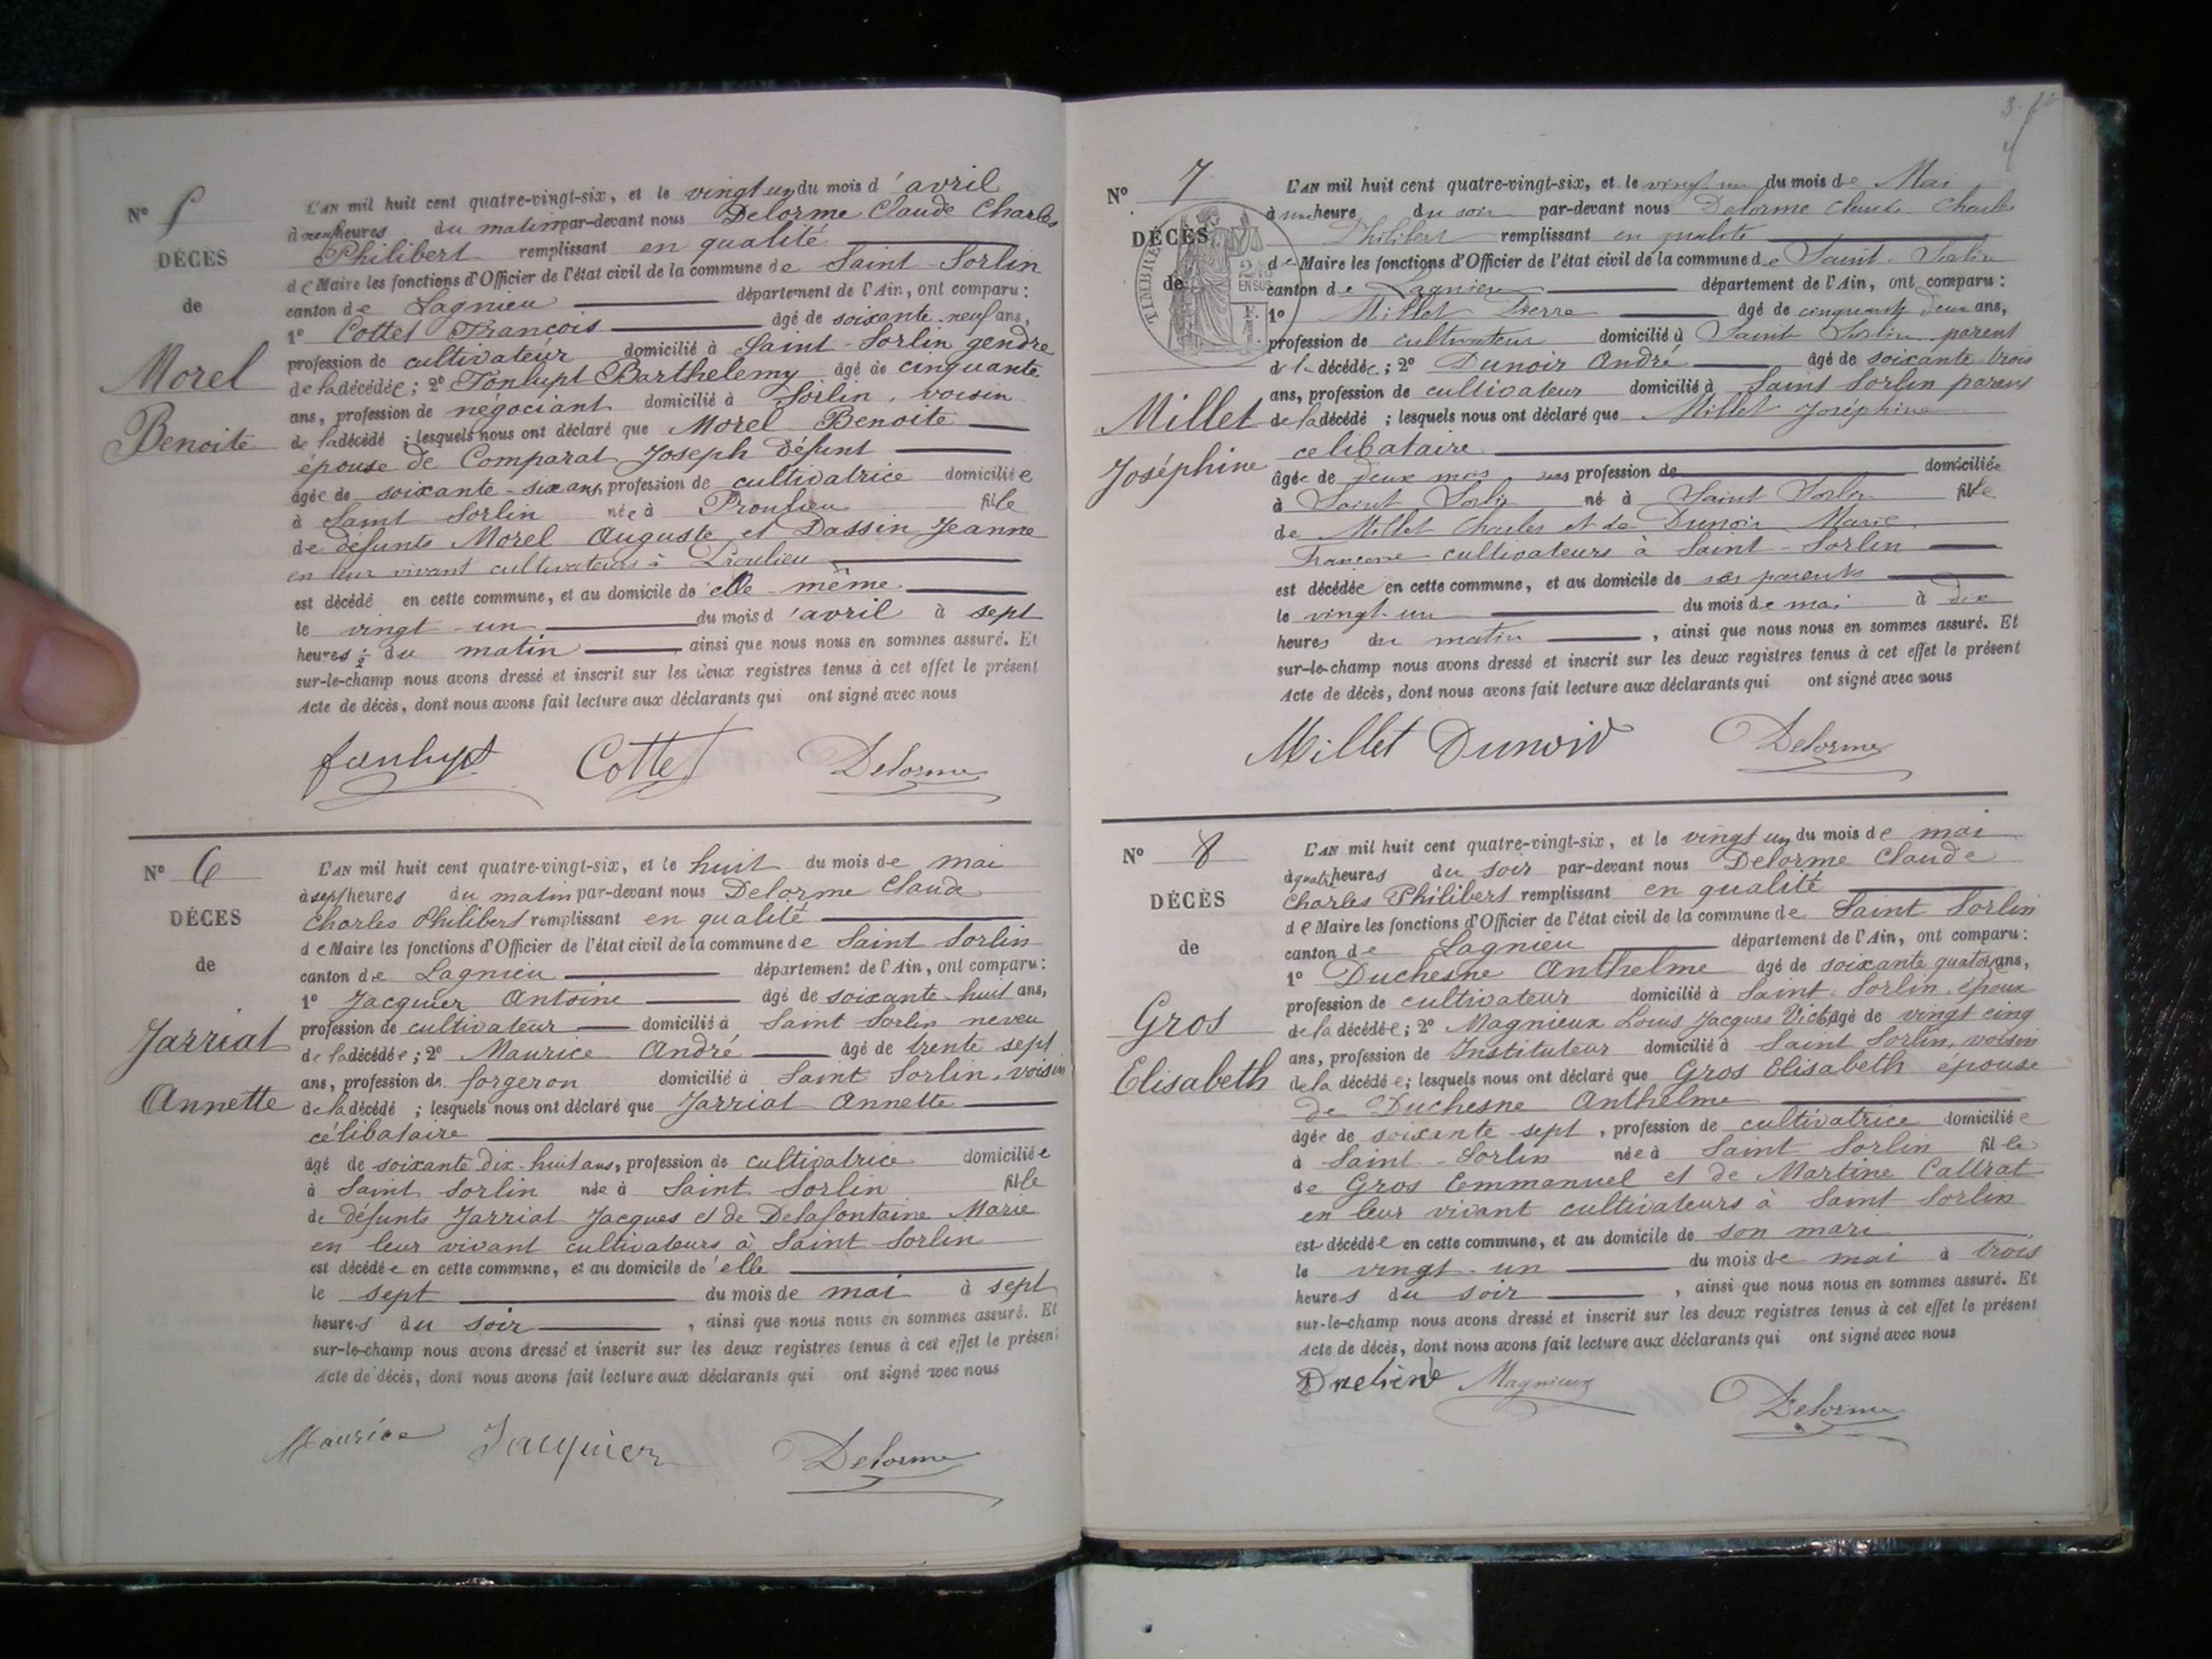 N° 5
DÉCÈS
de
Morel
Benoite
L'AN mil huit cent quatre-vingt-six, et le vingt un du mois d'avril
à neuf heures du matin par-devant nous Delorme Claude Charles
Philibert remplissant en qualité
de Maire les fonctions d'Officier de l'état civil de la commune de Saint-Sorlin
canton de Lagnieu département de l'Ain, ont comparu :
1° Cottet François âgé de soixante-neuf ans,
profession de cultivateur domicilié à Saint-Sorlin gendre
de la décédée ; 2° Tonlupt Barthelemy âgé de cinquante
ans, profession de négociant domicilié à Sorlin, voisin
de la décédé ; lesquels nous ont déclaré que Morel Benoite
épouse de Comparat Joseph défunt
âgée de soixante-six ans, profession de cultivatrice domiciliée
à Saint Sorlin née à Proulieu fille
de défunts Morel Auguste et Dassin Jeanne
en leur vivant cultivateurs à Proulieu
est décédé en cette commune, et au domicile de elle-même
le vingt-un du mois d'avril à sept
heures 1/2 du matin ainsi que nous nous en sommes assuré. Et
sur-le-champ nous avons dressé et inscrit sur les deux registres tenus à cet effet le présent
Acte de décès, dont nous avons fait lecture aux déclarants qui ont signé avec nous
Tonlupt Cottet Delorme
N° 6
DÉCÈS
de
Jarriat
Annette
L'AN mil huit cent quatre-vingt-six, et le huit du mois de mai
à sept heures du matin par-devant nous Delorme Claude
Charles Philibert remplissant en qualité
de Maire les fonctions d'Officier de l'état civil de la commune de Saint Sorlin
canton de Lagnieu département de l'Ain, ont comparu :
1° Jacquier Antoine âgé de soixante-huit ans,
profession de cultivateur domicilié à Saint Sorlin neveu
de la décédée ; 2° Maurice André âgé de trente sept
ans, profession de forgeron domicilié à Saint Sorlin, voisin
de la décédé ; lesquels nous ont déclaré que Jarriat Annette
célibataire
âgé de soixante dix-huit ans, profession de cultivatrice domiciliée
à Saint Sorlin née à Saint Sorlin fille
de défunts Jarriat Jacques et de Delafontaine Marie
en leur vivant cultivateurs à Saint Sorlin
est décédée en cette commune, et au domicile de elle
le sept du mois de mai à sept
heures du soir, ainsi que nous nous en sommes assuré. Et
sur-le-champ nous avons dressé et inscrit sur les deux registres tenus à cet effet le présent
Acte de décès, dont nous avons fait lecture aux déclarants qui ont signé avec nous
Maurice Jacquier Delorme
3.
N° 7
DÉCÈS
de
TIMBRE
2/10 EN SUS
Millet
Joséphine
L'AN mil huit cent quatre-vingt-six, et le vingt-un du mois de Mai
à une heure du soir par-devant nous Delorme Claude Charles
Philibert remplissant en qualité
de Maire les fonctions d'Officier de l'état civil de la commune de Saint-Sorlin
canton de Lagnieu département de l'Ain, ont comparu :
1° Millet Pierre âgé de cinquante deux ans,
profession de cultivateur domicilié à Saint Sorlin parent
de la décédée ; 2° Dunoir André âgé de soixante trois
ans, profession de cultivateur domicilié à Saint Sorlin parent
de la décédé ; lesquels nous ont déclaré que Millet Joséphine
celibataire
âgée de deux mois ans profession de domiciliée
à Saint Sorlin né à Saint Sorlin fille
de Millet Charles et de Dunoir Marie
Françoise cultivateurs à Saint-Sorlin
est décédée en cette commune, et au domicile de ses parents
le vingt-un du mois de mai à dix
heures du matin, ainsi que nous nous en sommes assuré. Et
sur-le-champ nous avons dressé et inscrit sur les deux registres tenus à cet effet le présent
Acte de décès, dont nous avons fait lecture aux déclarants qui ont signé avec nous
Millet Dunoir Delorme
N° 8
DÉCÈS
de
Gros
Elisabeth
L'AN mil huit cent quatre-vingt-six, et le vingt un du mois de mai
à quatre heures du soir par-devant nous Delorme Claude
Charles Philibert remplissant en qualité
de Maire les fonctions d'Officier de l'état civil de la commune de Saint Sorlin
canton de Lagnieu département de l'Ain, ont comparu :
1° Duchesne Anthelme âgé de soixante quatorze ans,
profession de cultivateur domicilié à Saint-Sorlin, époux
de la décédée ; 2° Magnieux Louis Jacques Victor âgé de vingt cinq
ans, profession de Instituteur domicilié à Saint Sorlin, voisin
de la décédée ; lesquels nous ont déclaré que Gros Elisabeth épouse
de Duchesne Anthelme
âgée de soixante-sept, profession de cultivatrice domiciliée
à Saint-Sorlin née à Saint Sorlin fille
de Gros Emmanuel et de Martine Cattrat
en leur vivant cultivateurs à Saint Sorlin
est décédée en cette commune, et au domicile de son mari
le vingt-un du mois de mai à trois
heures du soir, ainsi que nous nous en sommes assuré. Et
sur-le-champ nous avons dressé et inscrit sur les deux registres tenus à cet effet le présent
Acte de décès, dont nous avons fait lecture aux déclarants qui ont signé avec nous
Magnieux Delorme